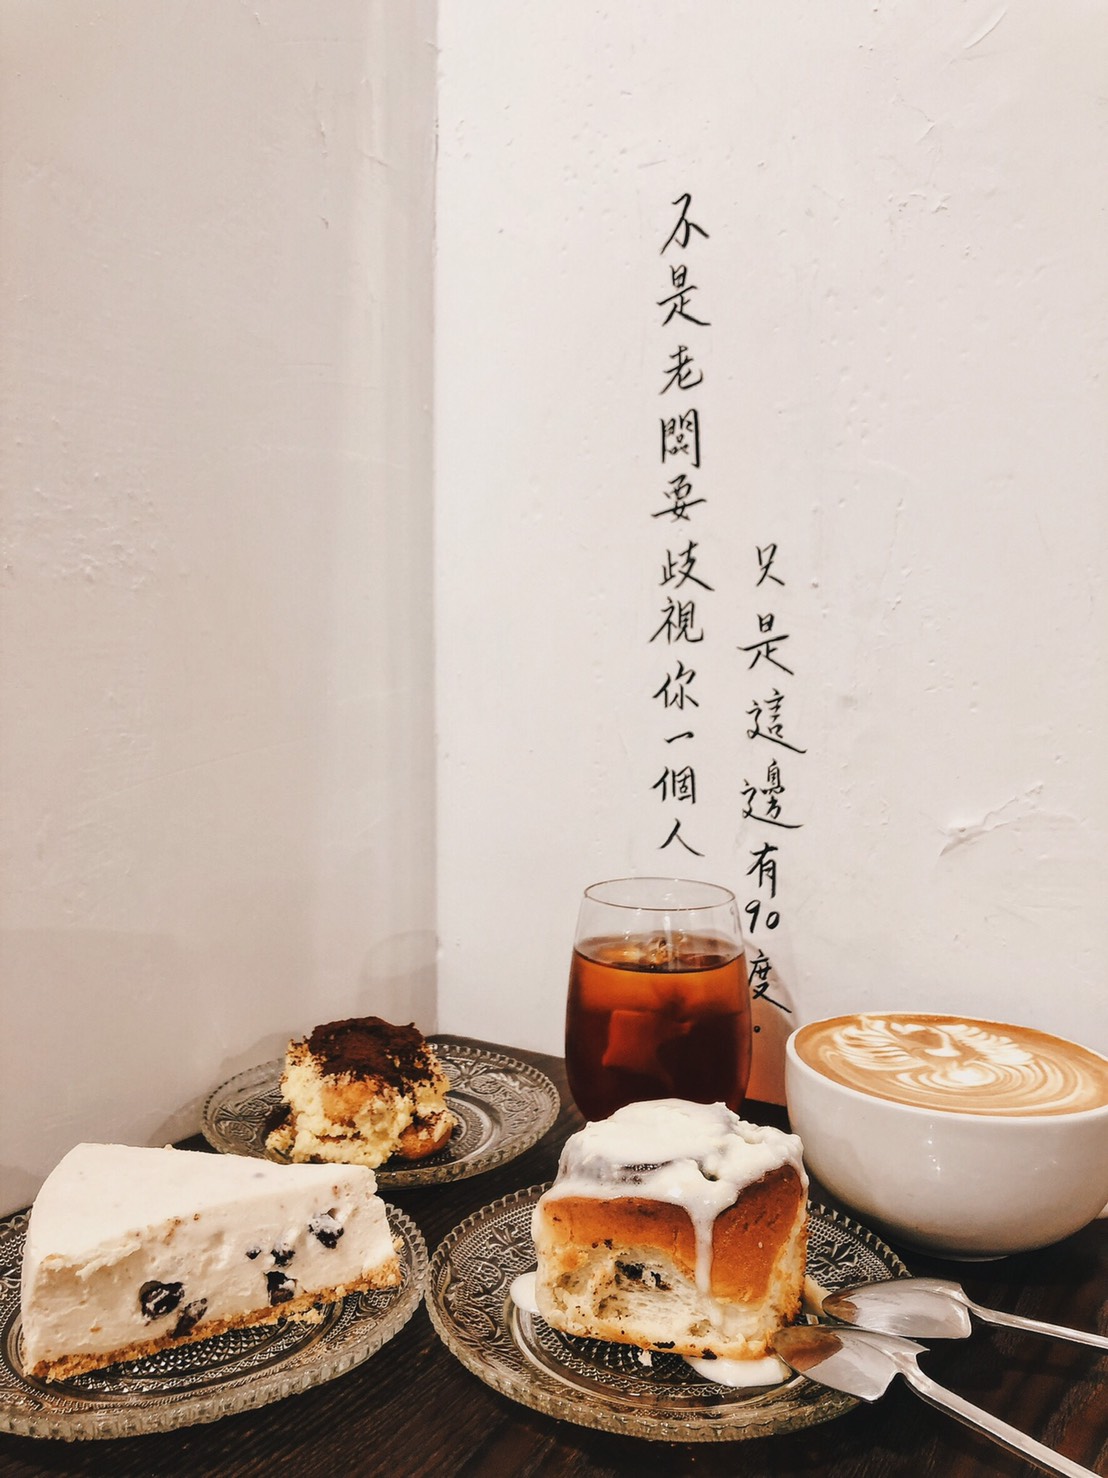 不是老闆要歧視你一個人
只是這邊有90度.